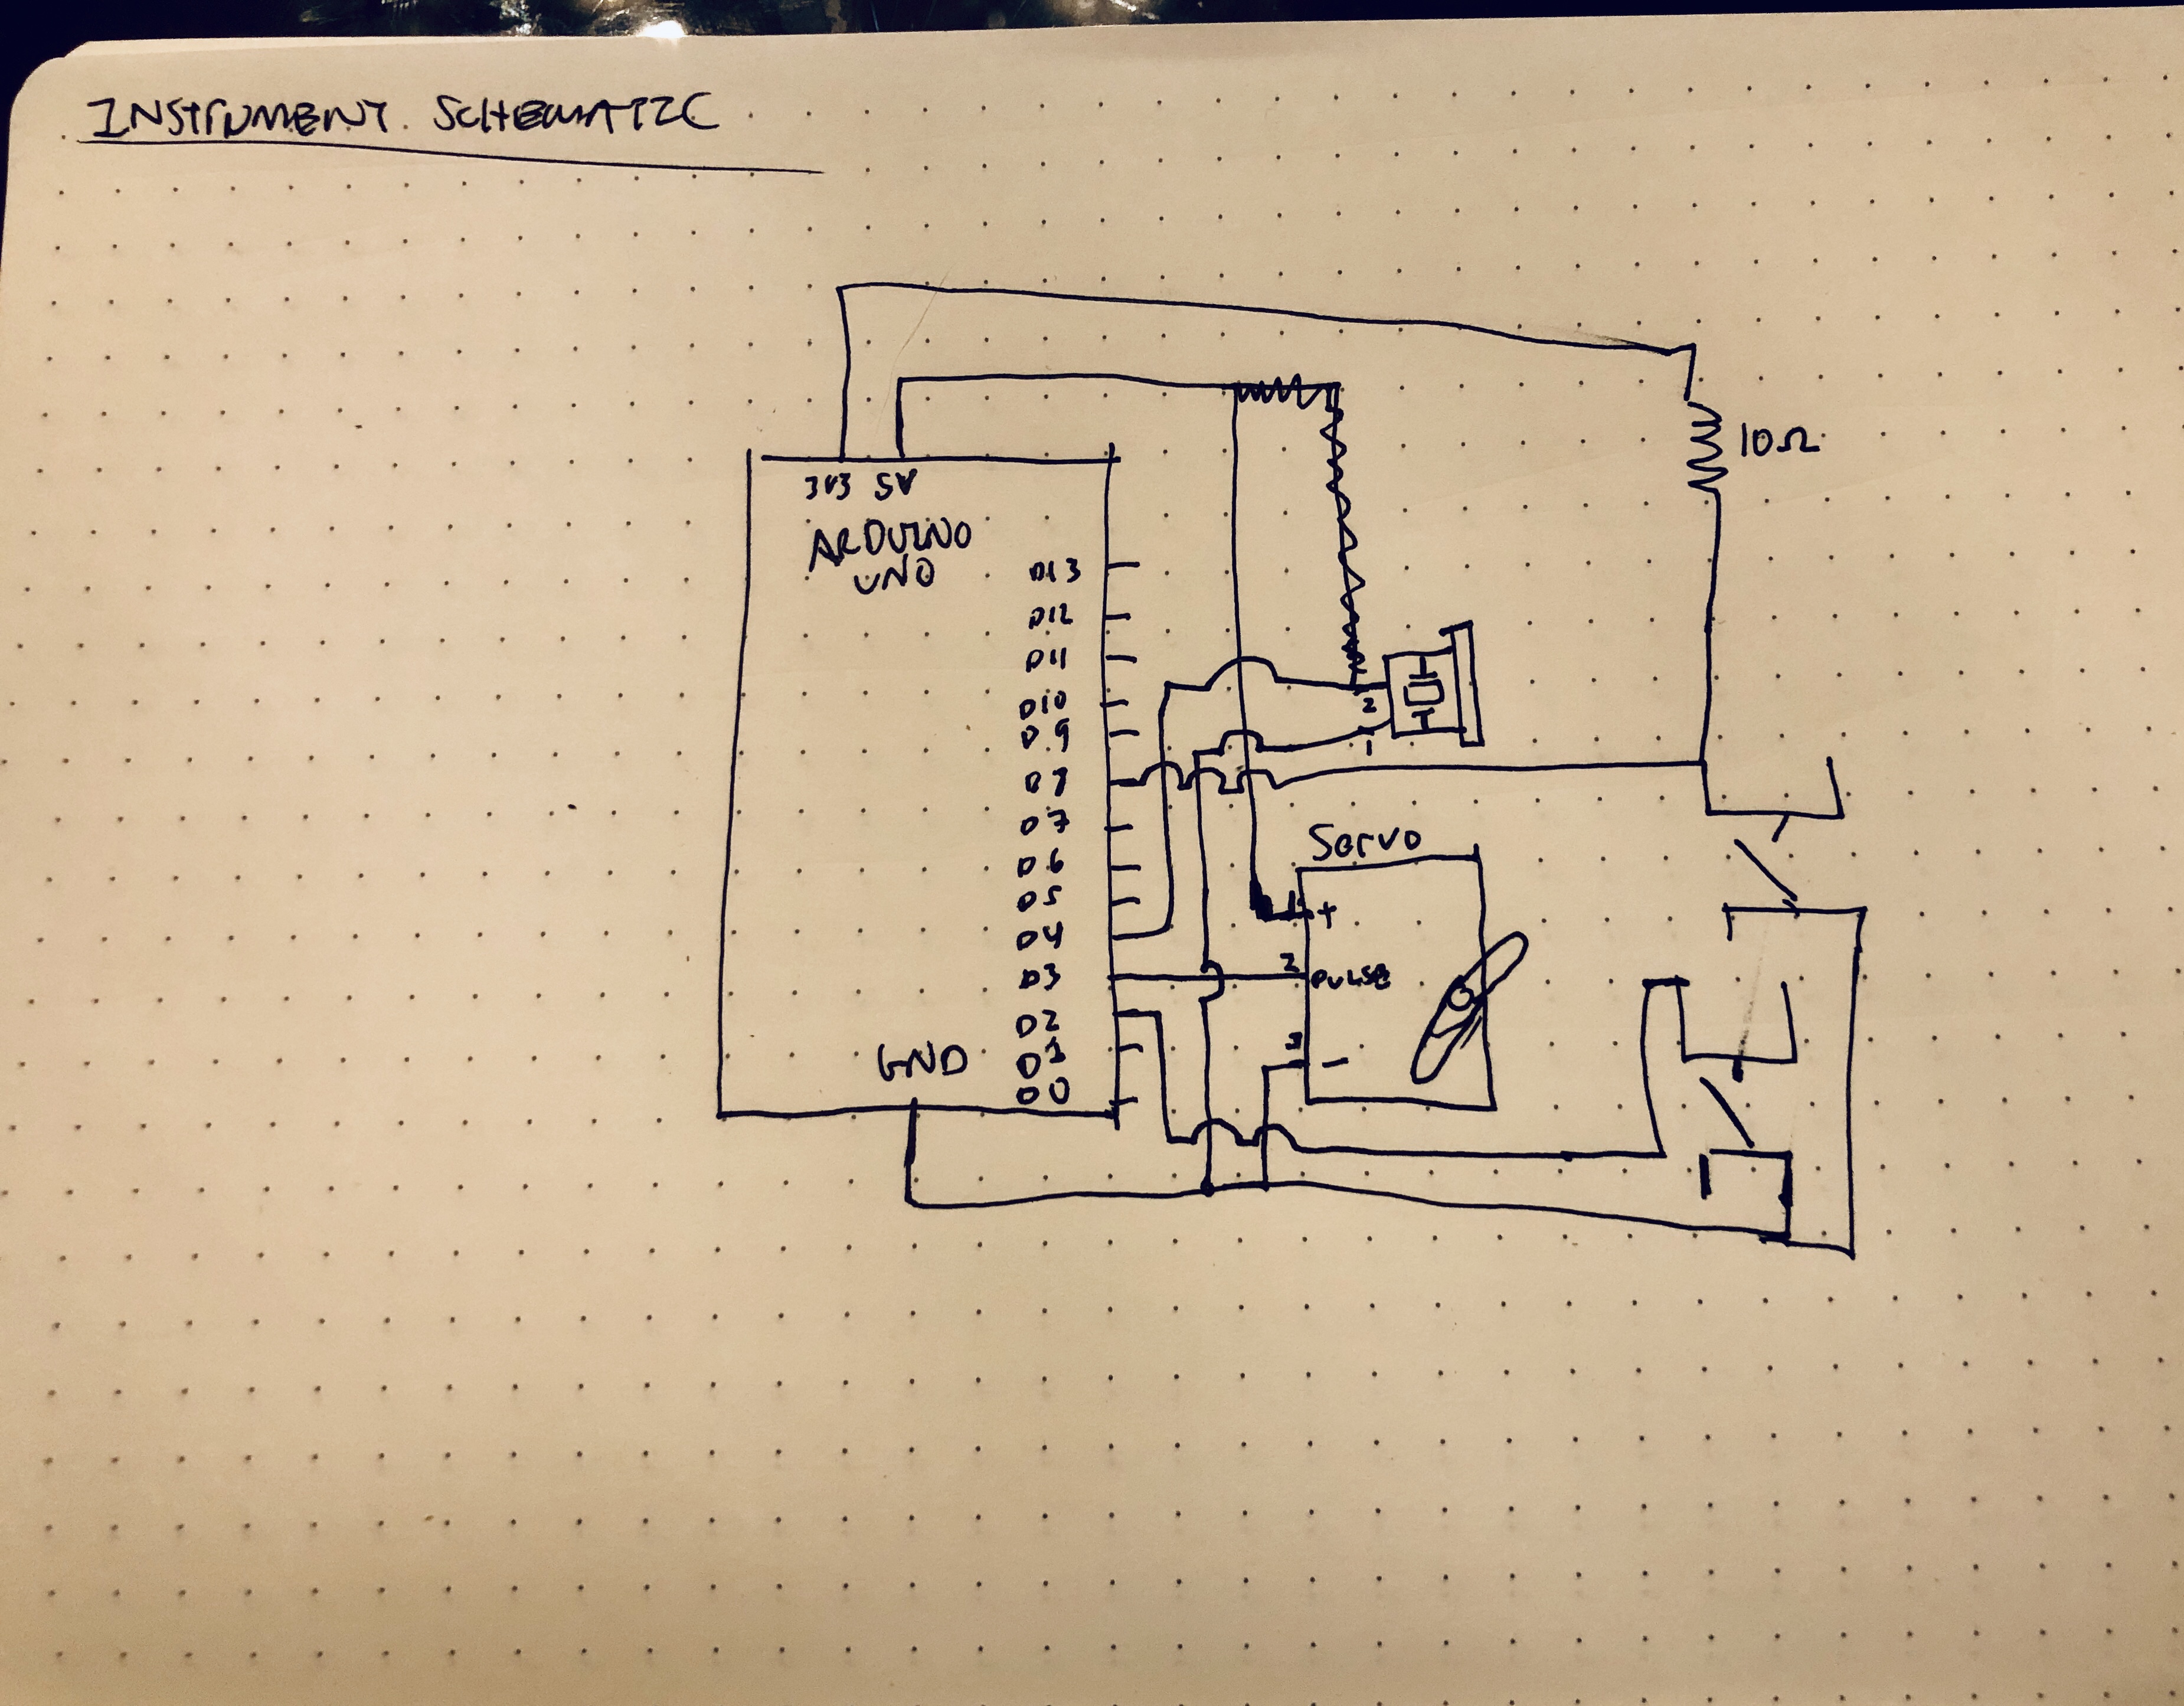 INSTRUMENT SCHEMATIC
10Ω
3V3 5V
ARDUINO
UNO
D13
D12
D11
D10
D9
D8
D7
D6
D5
D4
D3
D2
D1
D0
GND
2
1
Servo
1 +
2 PULSE
3 -